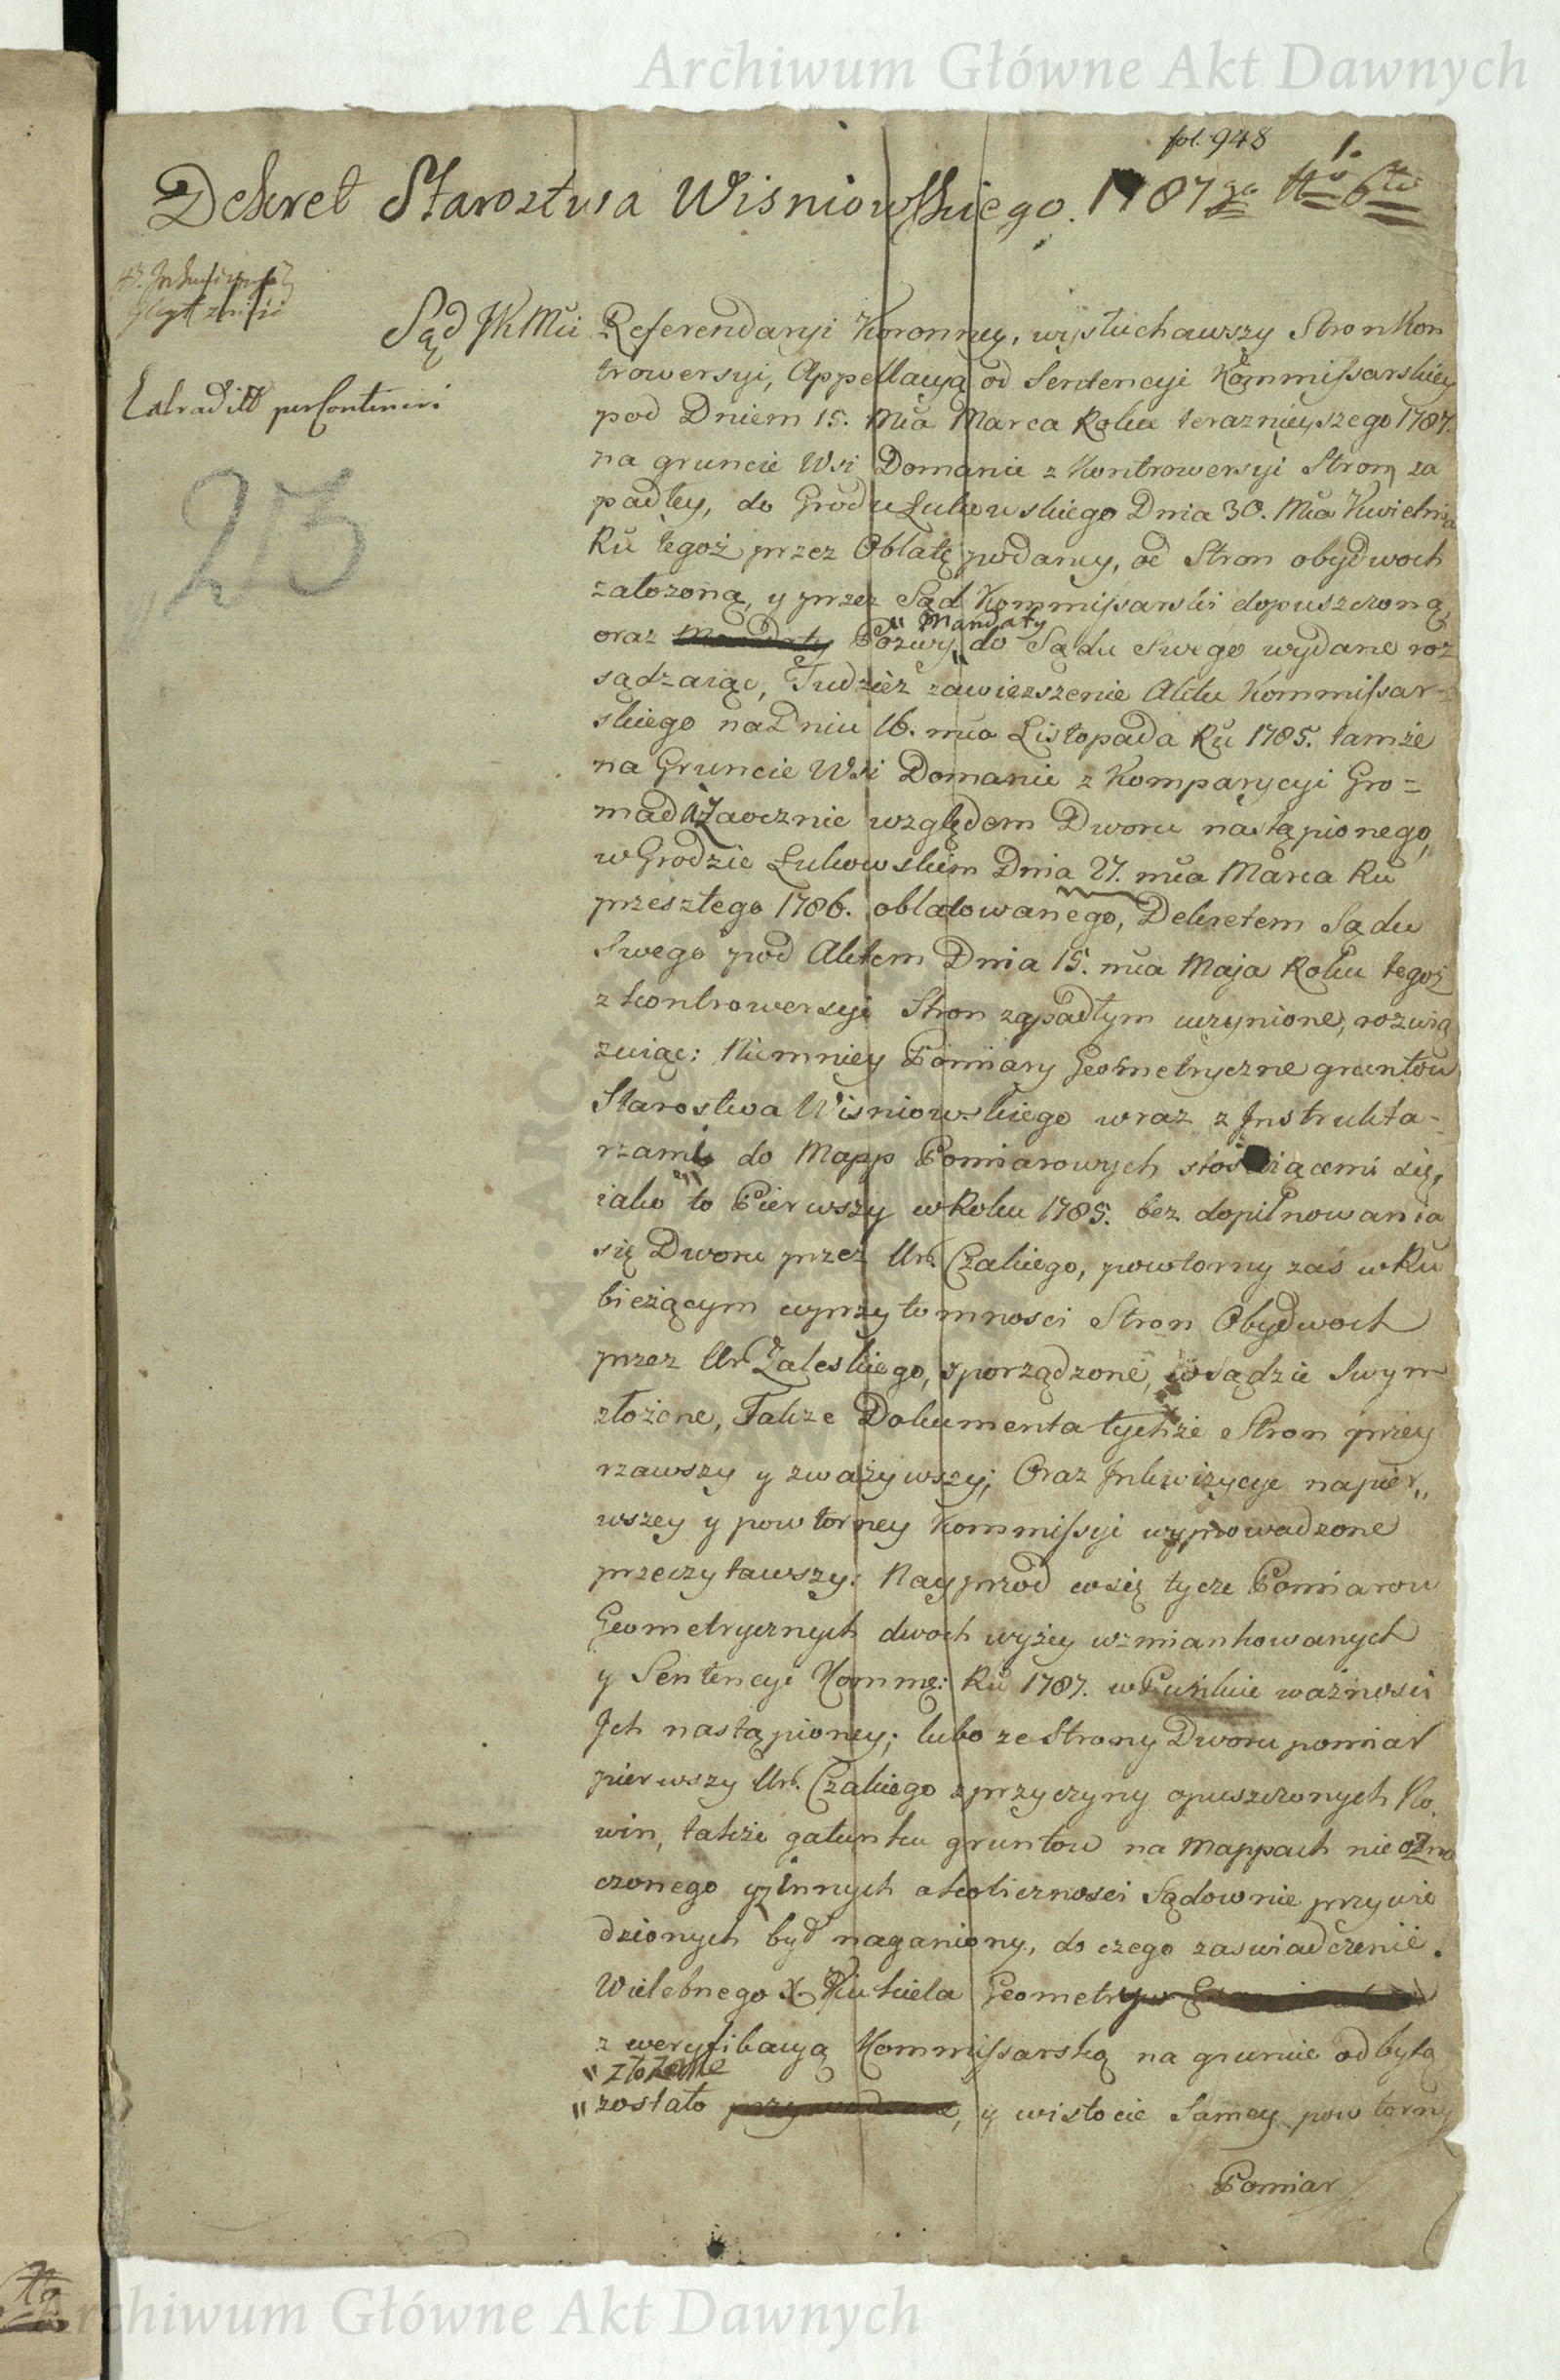 Archiwum Główne Akt Dawnych
fol. 948
1.
Dekret Starostwa Wisniowskiego. 1787go No 6to
Sąd JKMci Referendaryi Koronney, wysłuchawszy Stron Kon
trowersyi, Appellacyą od Sentencyi Kommissarskiey
Extradild per Continui
pod Dniem 15. Mca Marca Roku teraznieyszego 1787.
na gruncie Wsi Domanie z Kontrowersyi Stron, za
padłey, do Grodu Łukowskiego Dnia 30. Mca Kwietnia
215
Ku tegoż przez Oblatę podaney, od Stron obydwoch
założoną, y przez Sąd Kommissarski dopuszczoną,
" Mandaty
oraz Mandaty Pozwy do Sądu Swego wydane roz
sądzaiąc, Tudzież zawieszenie Aktu Kommissar-
skiego na Dniu 16. mca Listopada Ru 1785. tamże
na Gruncie Wsi Domanie z Komparycyi Gro=
mad Zaocznie względem Dworu nastąpionego,
w Grodzie Łukowskim Dnia 27. mca Marca Ru
przeszłego 1786. oblatowanego, Dekretem Sądu
Swego pod Aktem Dnia 15. mca Maja Roku tegoż
z kontrowersyi Stron zapadłym uczynione, rozwią
zuiąc: Niemniey Pomiary Geometryczne gruntow
Starostwa Wisniowskiego wraz z Instrukta-
rzami do Mapp Pomiarowych stosuiącemi się,
iako to Pierwszy w Roku 1785. bez dopilnowania
się Dworu przez Ur. Czakiego, powtorny zaś w Ru
bieżącym w przytomnosci Stron Obydwoch
przez Ur. Zaleskiego, sporządzone, w Sądzie Swym
złożone, Także Dokumenta tychże Stron przey
rzawszy y zważywszy; Oraz Inkwizycye na pier„
wszey y powtorney Kommissyi wyprowadzone
przeczytawszy: Nayprzod co się tycze Pomiarow
Geometrycznych dwoch wyżey wzmiankowanych
y Sentencyi Kommę: Ru 1787. w Punkcie ważnosci
Ich nastąpioney; lubo ze Strony Dworu pomiar
pierwszy Ur. Czakiego z przyczyny opuszczonych No
win, także gatunku gruntow na Mappach nie ozna
czonego y z innych okolicznosci Sądownie przywie
dzionych był naganiony, do czego zaswiadczenie
Wielebnego X. Kukiela Geometry
z weryfikacyą Kommissarską na gruncie odbytą
" złożone
" zostało, y w istocie Samey powtorny
Pomiar
Archiwum Główne Akt Dawnych